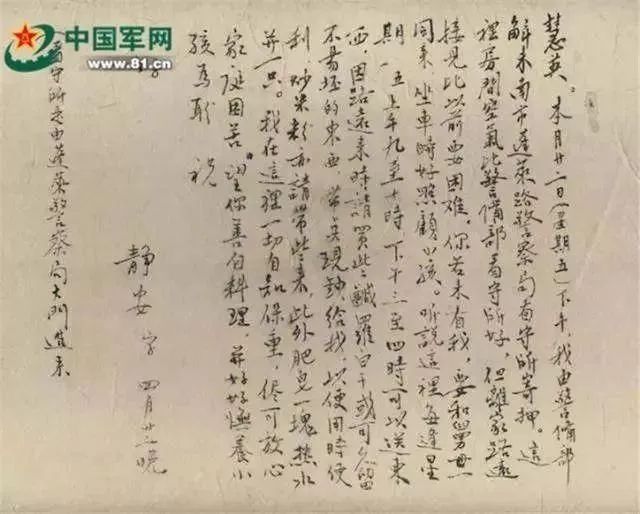 中国军网
www.81.cn
八一
慧英。本月廿二日(星期五)下午,我由警備部
解来南市蓬萊路警察局看守所寄押。這
裡房間空氣比警備部看守所好,但離家路遠
接見比以前要困难。你若来看我,要和舅母
同来。坐車時好照顧小孩。听說這裡每逢星
期一、五上午九至十時 下午三至四時可以送東
西,因路遠,来時請買些鹹羅白干或可久留
不易坯的東西,帶点現鈔给我以便用時便
利 炒米粉亦請帶些来,此外肥皂一塊热水
一只。我在這裡一切自知保重,儘可放心
家庭困苦。望你善自料理,并好好撫養小
孩爲盼 祝
静安 字 四月廿二晚
(看守所是由蓬萊警察局大門進来